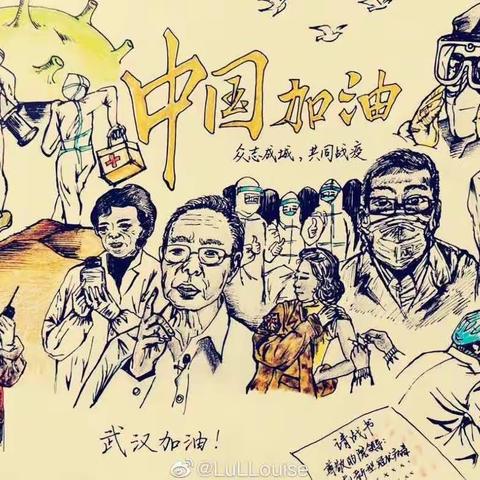 中国加油
众志成城，共同战疫
武汉加油！
请战书
尊敬的院领导：
@LuLLouise